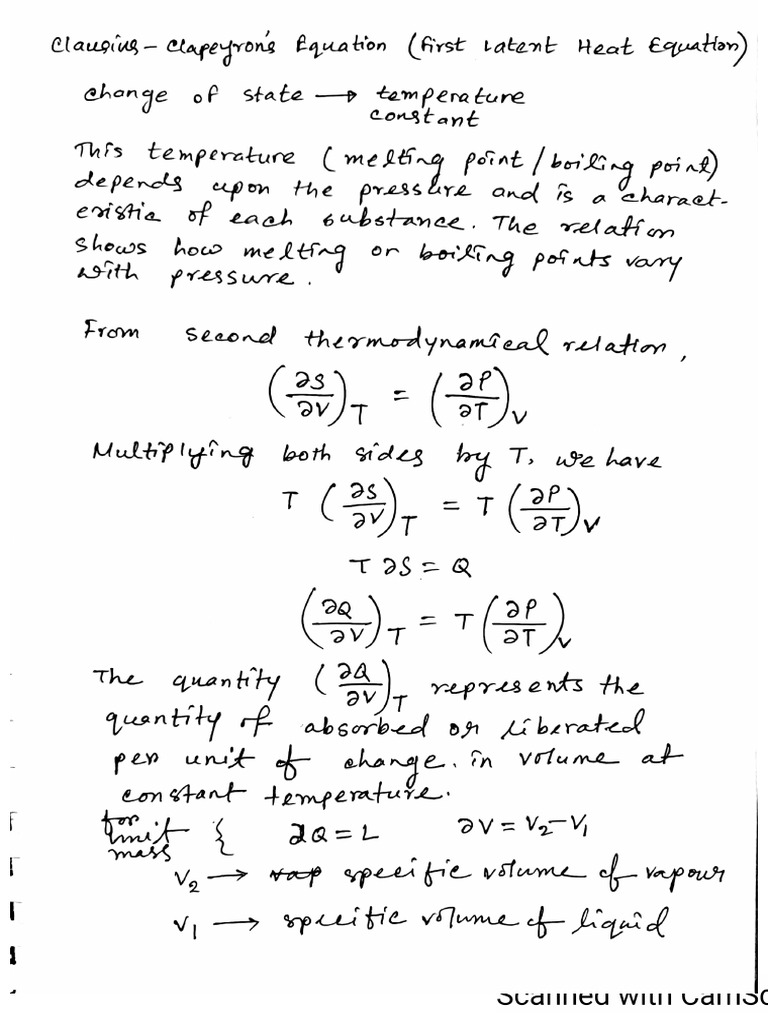 Clausius - Clapeyron's Equation (First Latent Heat Equation)
change of state → temperature
constant
This temperature (melting point / boiling point)
depends upon the pressure and is a charact-
eristic of each substance. The relation
shows how melting or boiling points vary
with pressure.
From second thermodynamical relation,
(∂S/∂V)_T = (∂P/∂T)_V
Multiplying both sides by T, we have
T (∂S/∂V)_T = T (∂P/∂T)_V
T ∂S = Q
(∂Q/∂V)_T = T (∂P/∂T)_V
The quantity (∂Q/∂V)_T represents the
quantity of absorbed or liberated
per unit of change. in volume at
constant temperature.
for unit mass { ∂Q = L ∂V = V₂ - V₁
V₂ → vap specific volume of vapour
V₁ → specific volume of liquid
Scanned with CamSc